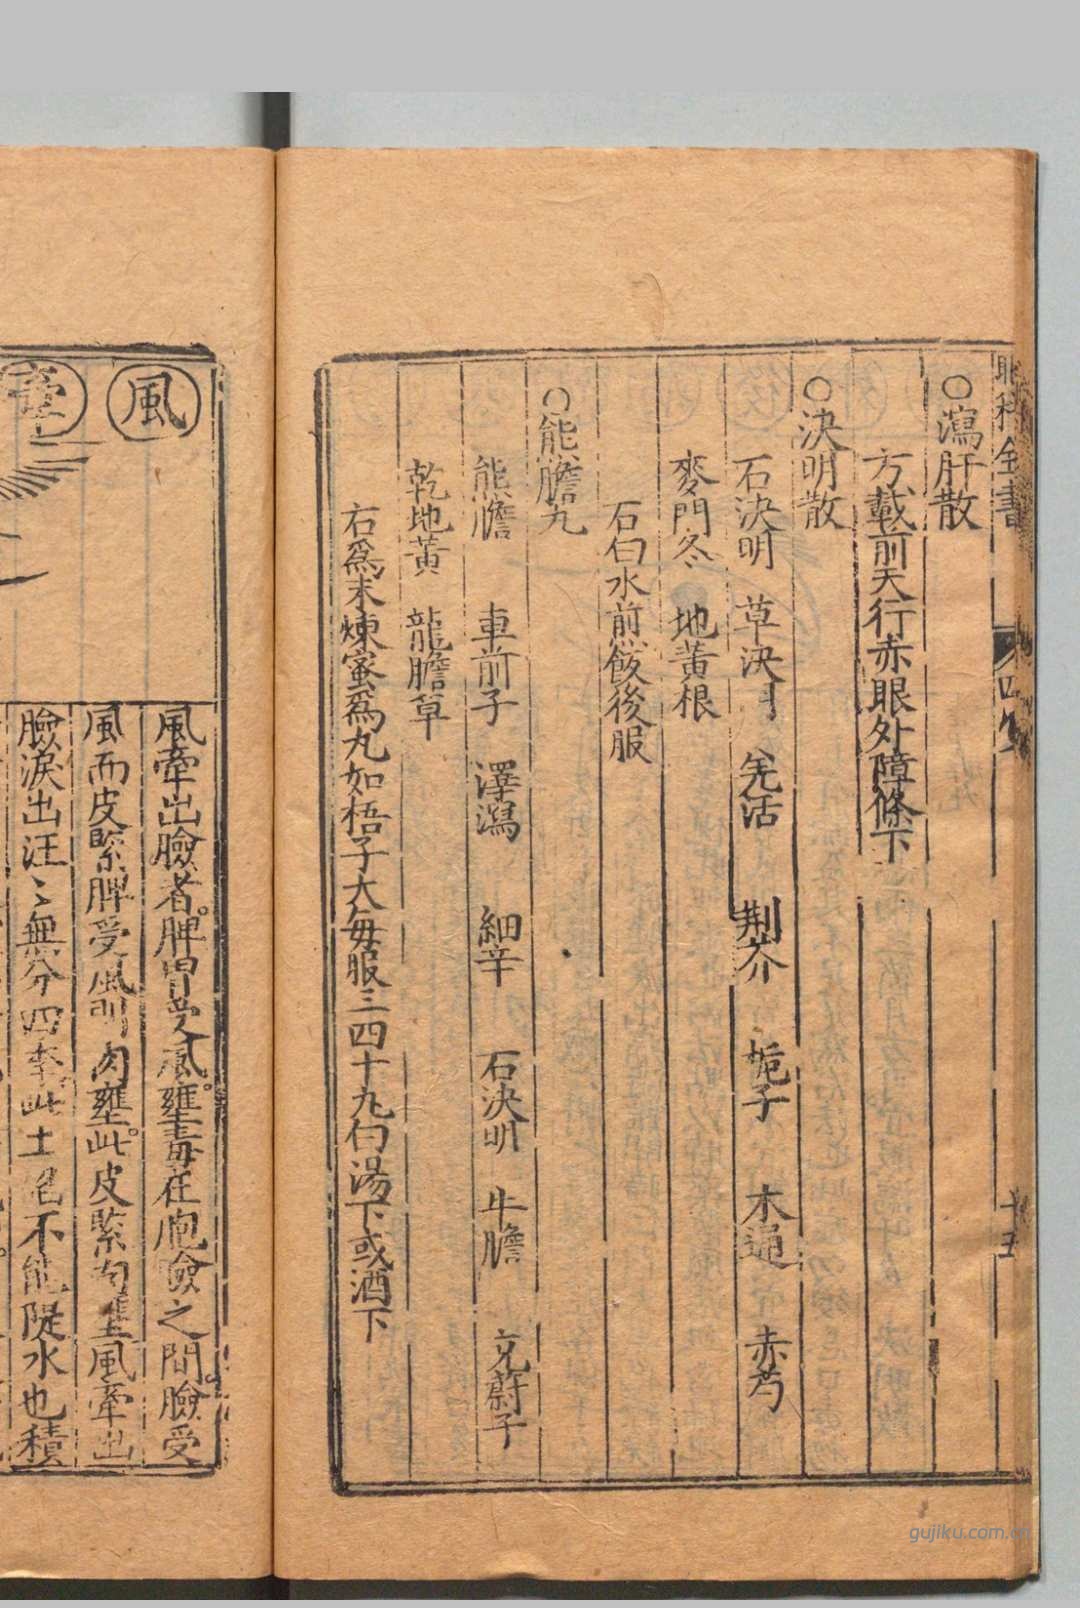 眼科全書
四卷
十五
○瀉肝散
方載前天行赤眼外障條下
○決明散
石決明 草決明 羌活 荆芥 梔子 木通 赤芍
麥門冬 地黃根
右㕮水煎飯後服
○熊膽丸
熊膽 車前子 澤瀉 細辛 石決明 牛膽 充蔚子
乾地黃 龍膽草
右爲末煉蜜爲丸如梧子大每服三四十丸白湯下或酒下
風
牽
風牽出臉者。脾胃受風。壅毒在胞臉之間。臉受
風而皮緊脾受風則肉壅。此皮緊肉壅風牽出
臉淚出汪〻無分四季。此土 不能隄水也積
gujiku.com.cn